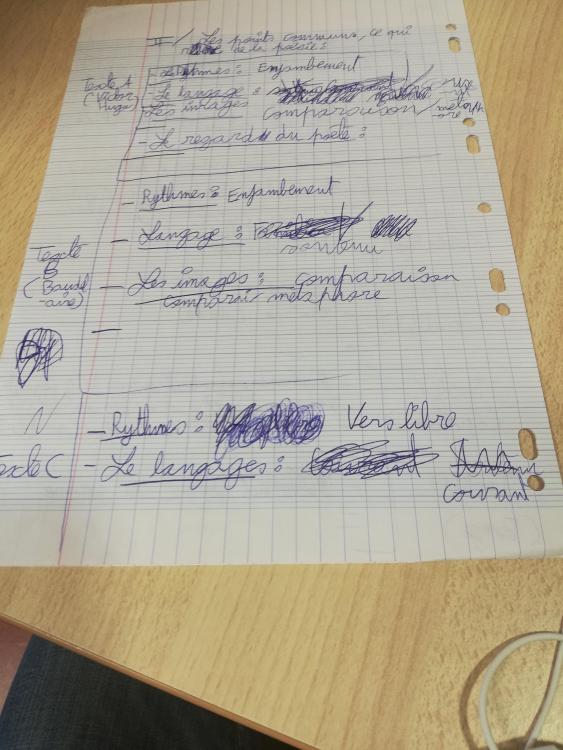 II / Les points communs, ce qui
relève de la poésie:
Texte A
(Victor
Hugo)
- Rythmes: Enjambement
- Le langage:
- Les images comparaison / métaph
ore
- Le regard du poète:
- Rythmes: Enjambement
- Langage:
soutenu
Texte
B
(Baudel
-aire)
- Les images: comparaison
métaphore
-
- Rythmes: Vers libre
Texte C - Le langages:
Courant